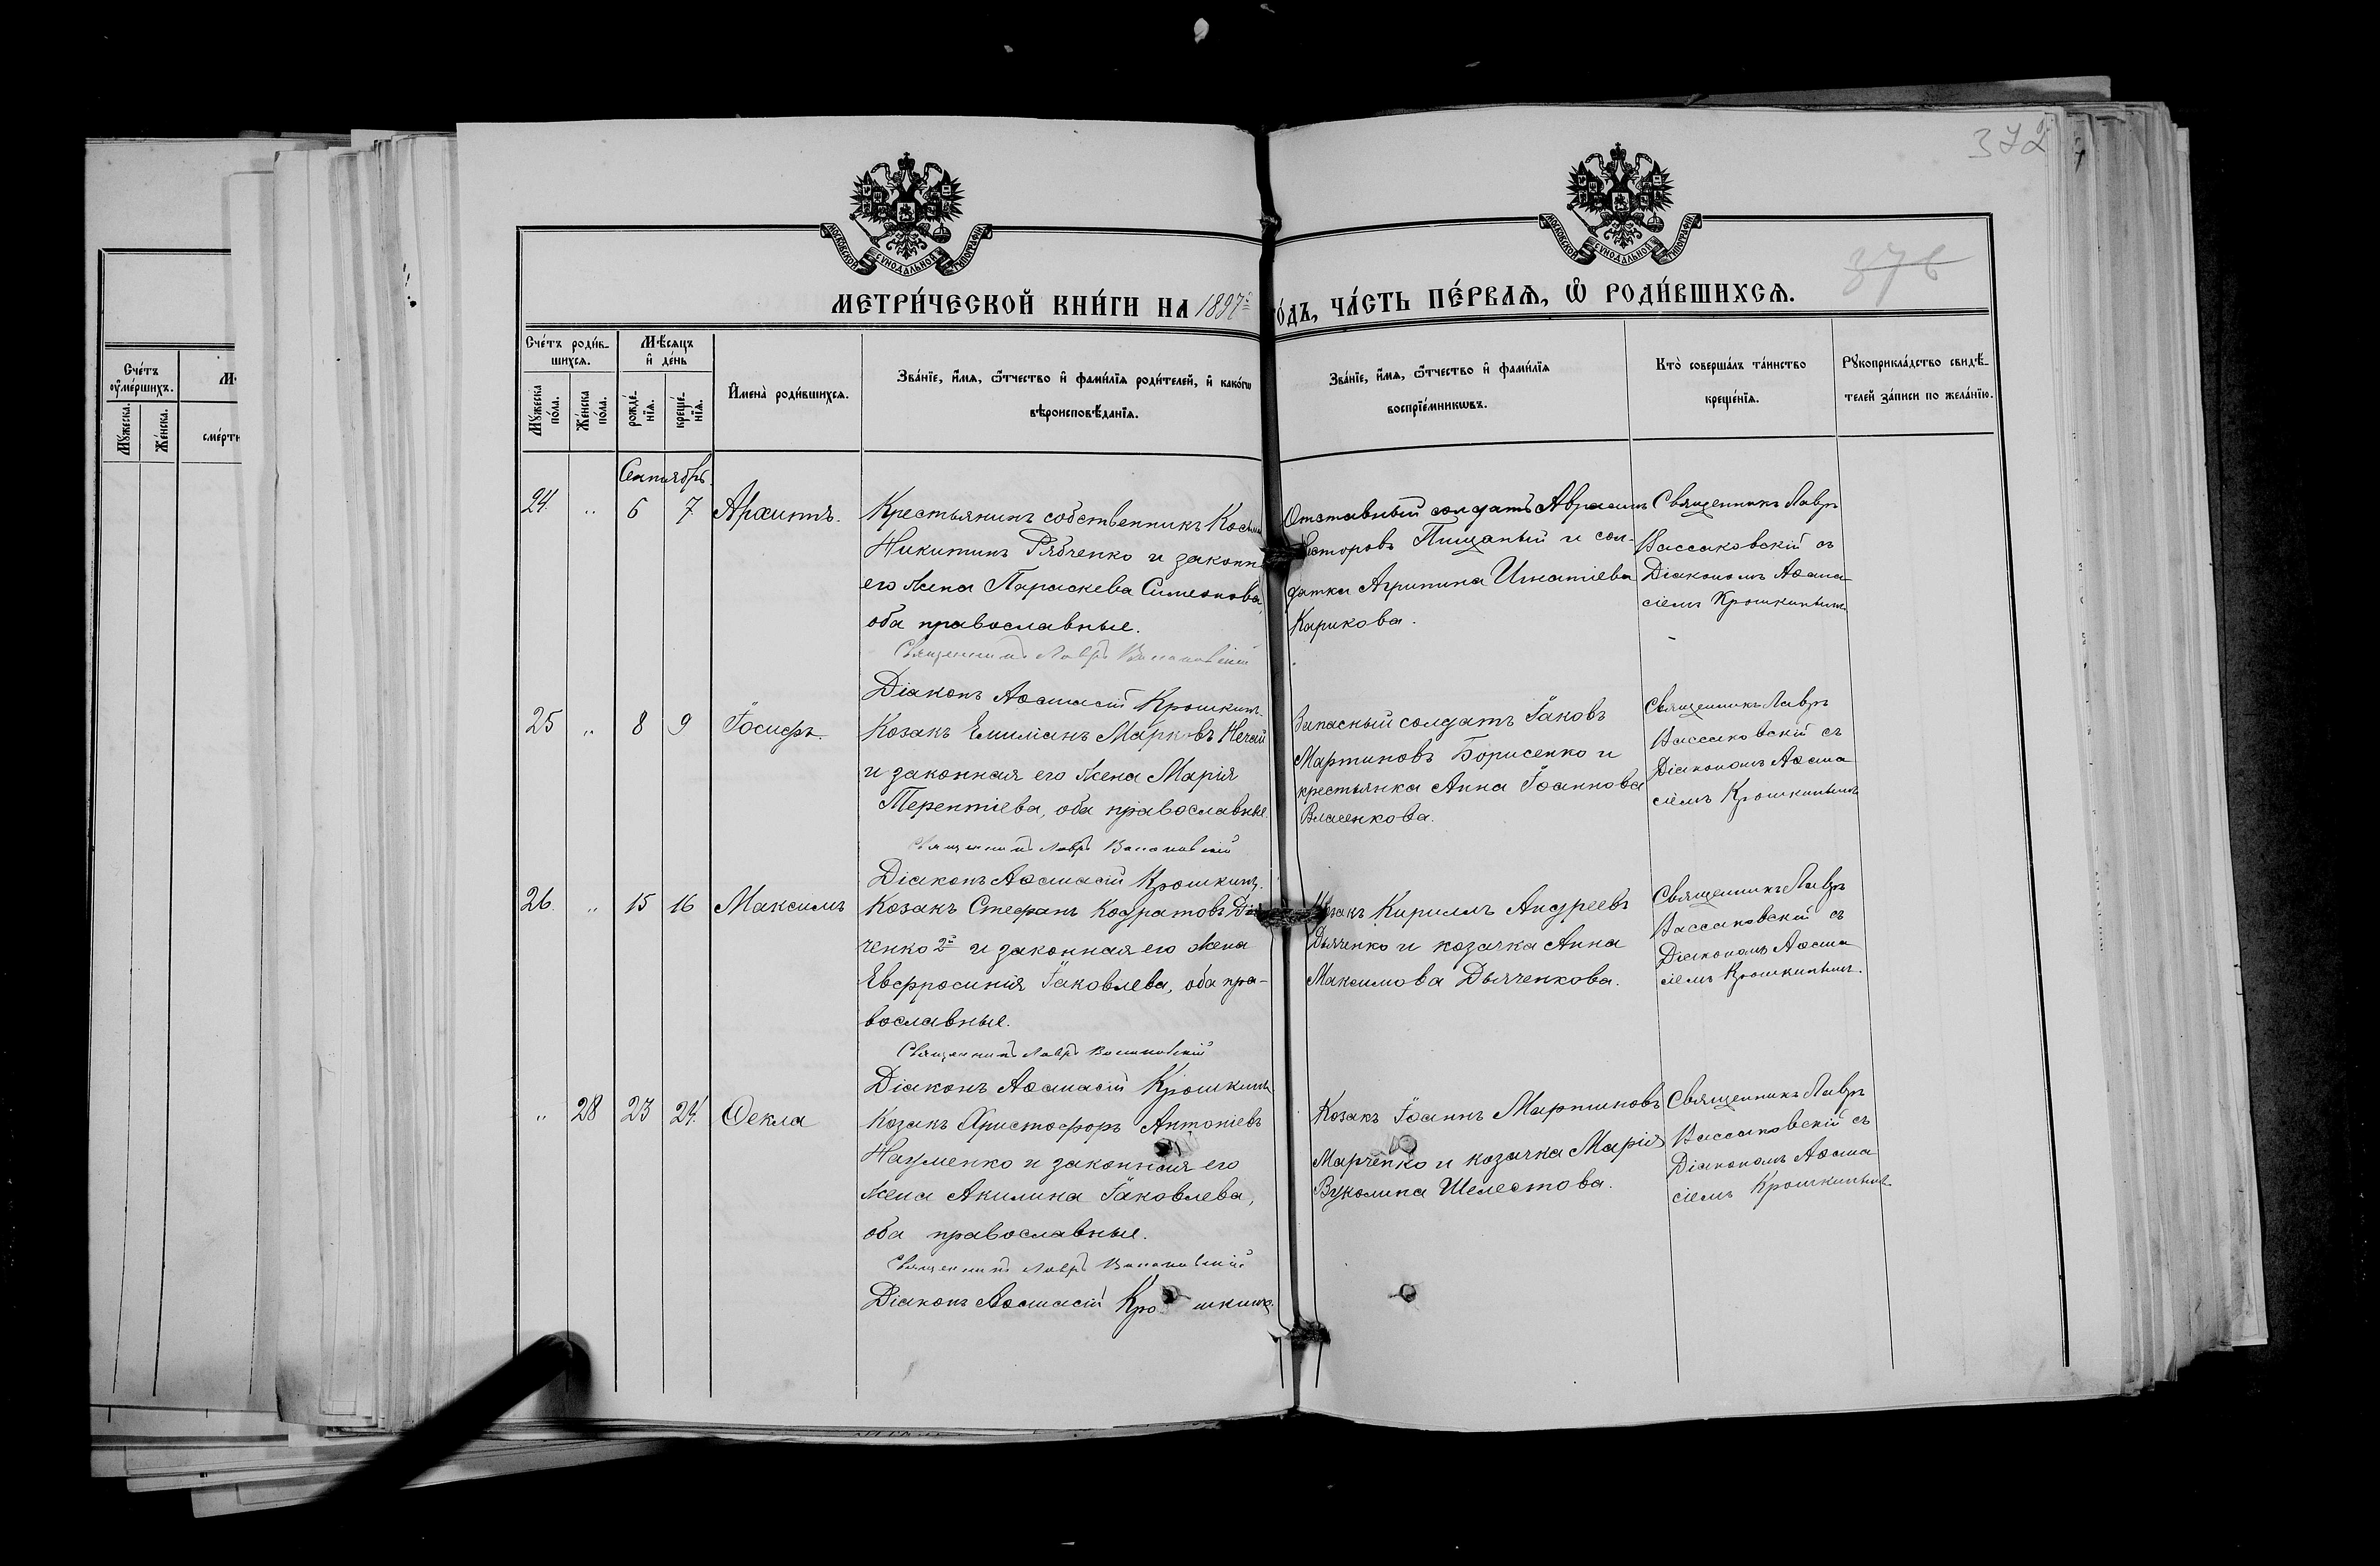 372
376
МОСКОВСКОЙ СѴНОДАЛЬНОЙ ТИПОГРАФІИ
МОСКОВСКОЙ СѴНОДАЛЬНОЙ ТИПОГРАФІИ
МЕТРИ́ЧЕСКОЙ КНИ́ГИ НА 1897 го́дъ, ЧА́СТЬ ПЕ́РВАѦ, Ѡ҆ РОДИ́ВШИХСѦ.
Сче́тъ оу҆ме́ршихъ.
Мꙋ́жеска.
Же́нска.
Сче́тъ роди́вшихся.
Мꙋ́жеска по́ла.
Же́нска по́ла.
Мѣ́сяцъ и҆ де́нь
рожде́нїя.
креще́нїя.
И҆мена̀ роди́вшихся.
Зва́нїе, и҆́мя, ѻ҆́тчество и҆ фами́лїя роди́телей, и҆ како́гѡ
вѣроисповѣ́данїя.
Зва́нїе, и҆́мя, ѻ҆́тчество и҆ фами́лїя
воспрїе́мникѡвъ.
Кто̀ соверша́лъ та́инство
креще́нїя.
Рꙋкоприкла́дство свидѣ́-
телей за́писи по жела́нїю.
Сентябрь.
24. " 6 7 Архиппъ.
Крестьянинъ собственникъ Косьма
Никитинъ Рябченко и законн
его жена Параскева Симеонова,
оба православные.
Священникъ Лавръ Вассаковскій
Діаконъ Аѳанасій Крошкинъ.
Отставный солдатъ Авраамъ
Несторовъ Пищаный и сол-
датка Агрипина Игнатіева
Карикова.
Священникъ Лавръ
Вассаковскій съ
Діакономъ Аѳана-
сіемъ Крошкинымъ
25 " 8 9 Іосифъ.
Козакъ Емиліанъ Марковъ Нечай
и законная его жена Марія
Терентіева, оба православные.
Священникъ Лавръ Вассаковскій
Діаконъ Аѳанасій Крошкинъ.
Запасный солдатъ Іаковъ
Мартиновъ Борисенко и
крестьянка Анна Іоаннова
Власенкова.
Священникъ Лавръ
Вассаковскій съ
Діакономъ Аѳана
сіемъ Крошкинымъ
26. " 15 16 Максимъ
Козакъ Стефанъ Кодратовъ
ченко 2й и законная его жена
Евфросинія Іаковлева, оба пра-
вославные.
Священникъ Лавръ Вассаковскій
Діаконъ Аѳанасій Крошкинъ
Козакъ Кириллъ Андреевъ
Дьяченко и козачка Анна
Максимова Дьяченкова.
Священникъ Лавръ
Вассаковскій съ
Діакономъ Аѳана
сіемъ Крошкинымъ.
" 28 23 24. Ѳекла
Козакъ Христофоръ Антоніевъ
Науменко и законная его
жена Акилина Іаковлева,
оба православные.
Священникъ Лавръ Вассаковскій
Діаконъ Аѳанасій Крошкинъ.
Козакъ Іоаннъ Мартиновъ
Марченко и козачка Марія
Вуколина Шелестова.
Священникъ Лавръ
Вассаковскій съ
Діакономъ Аѳана
сіемъ Крошкинымъ